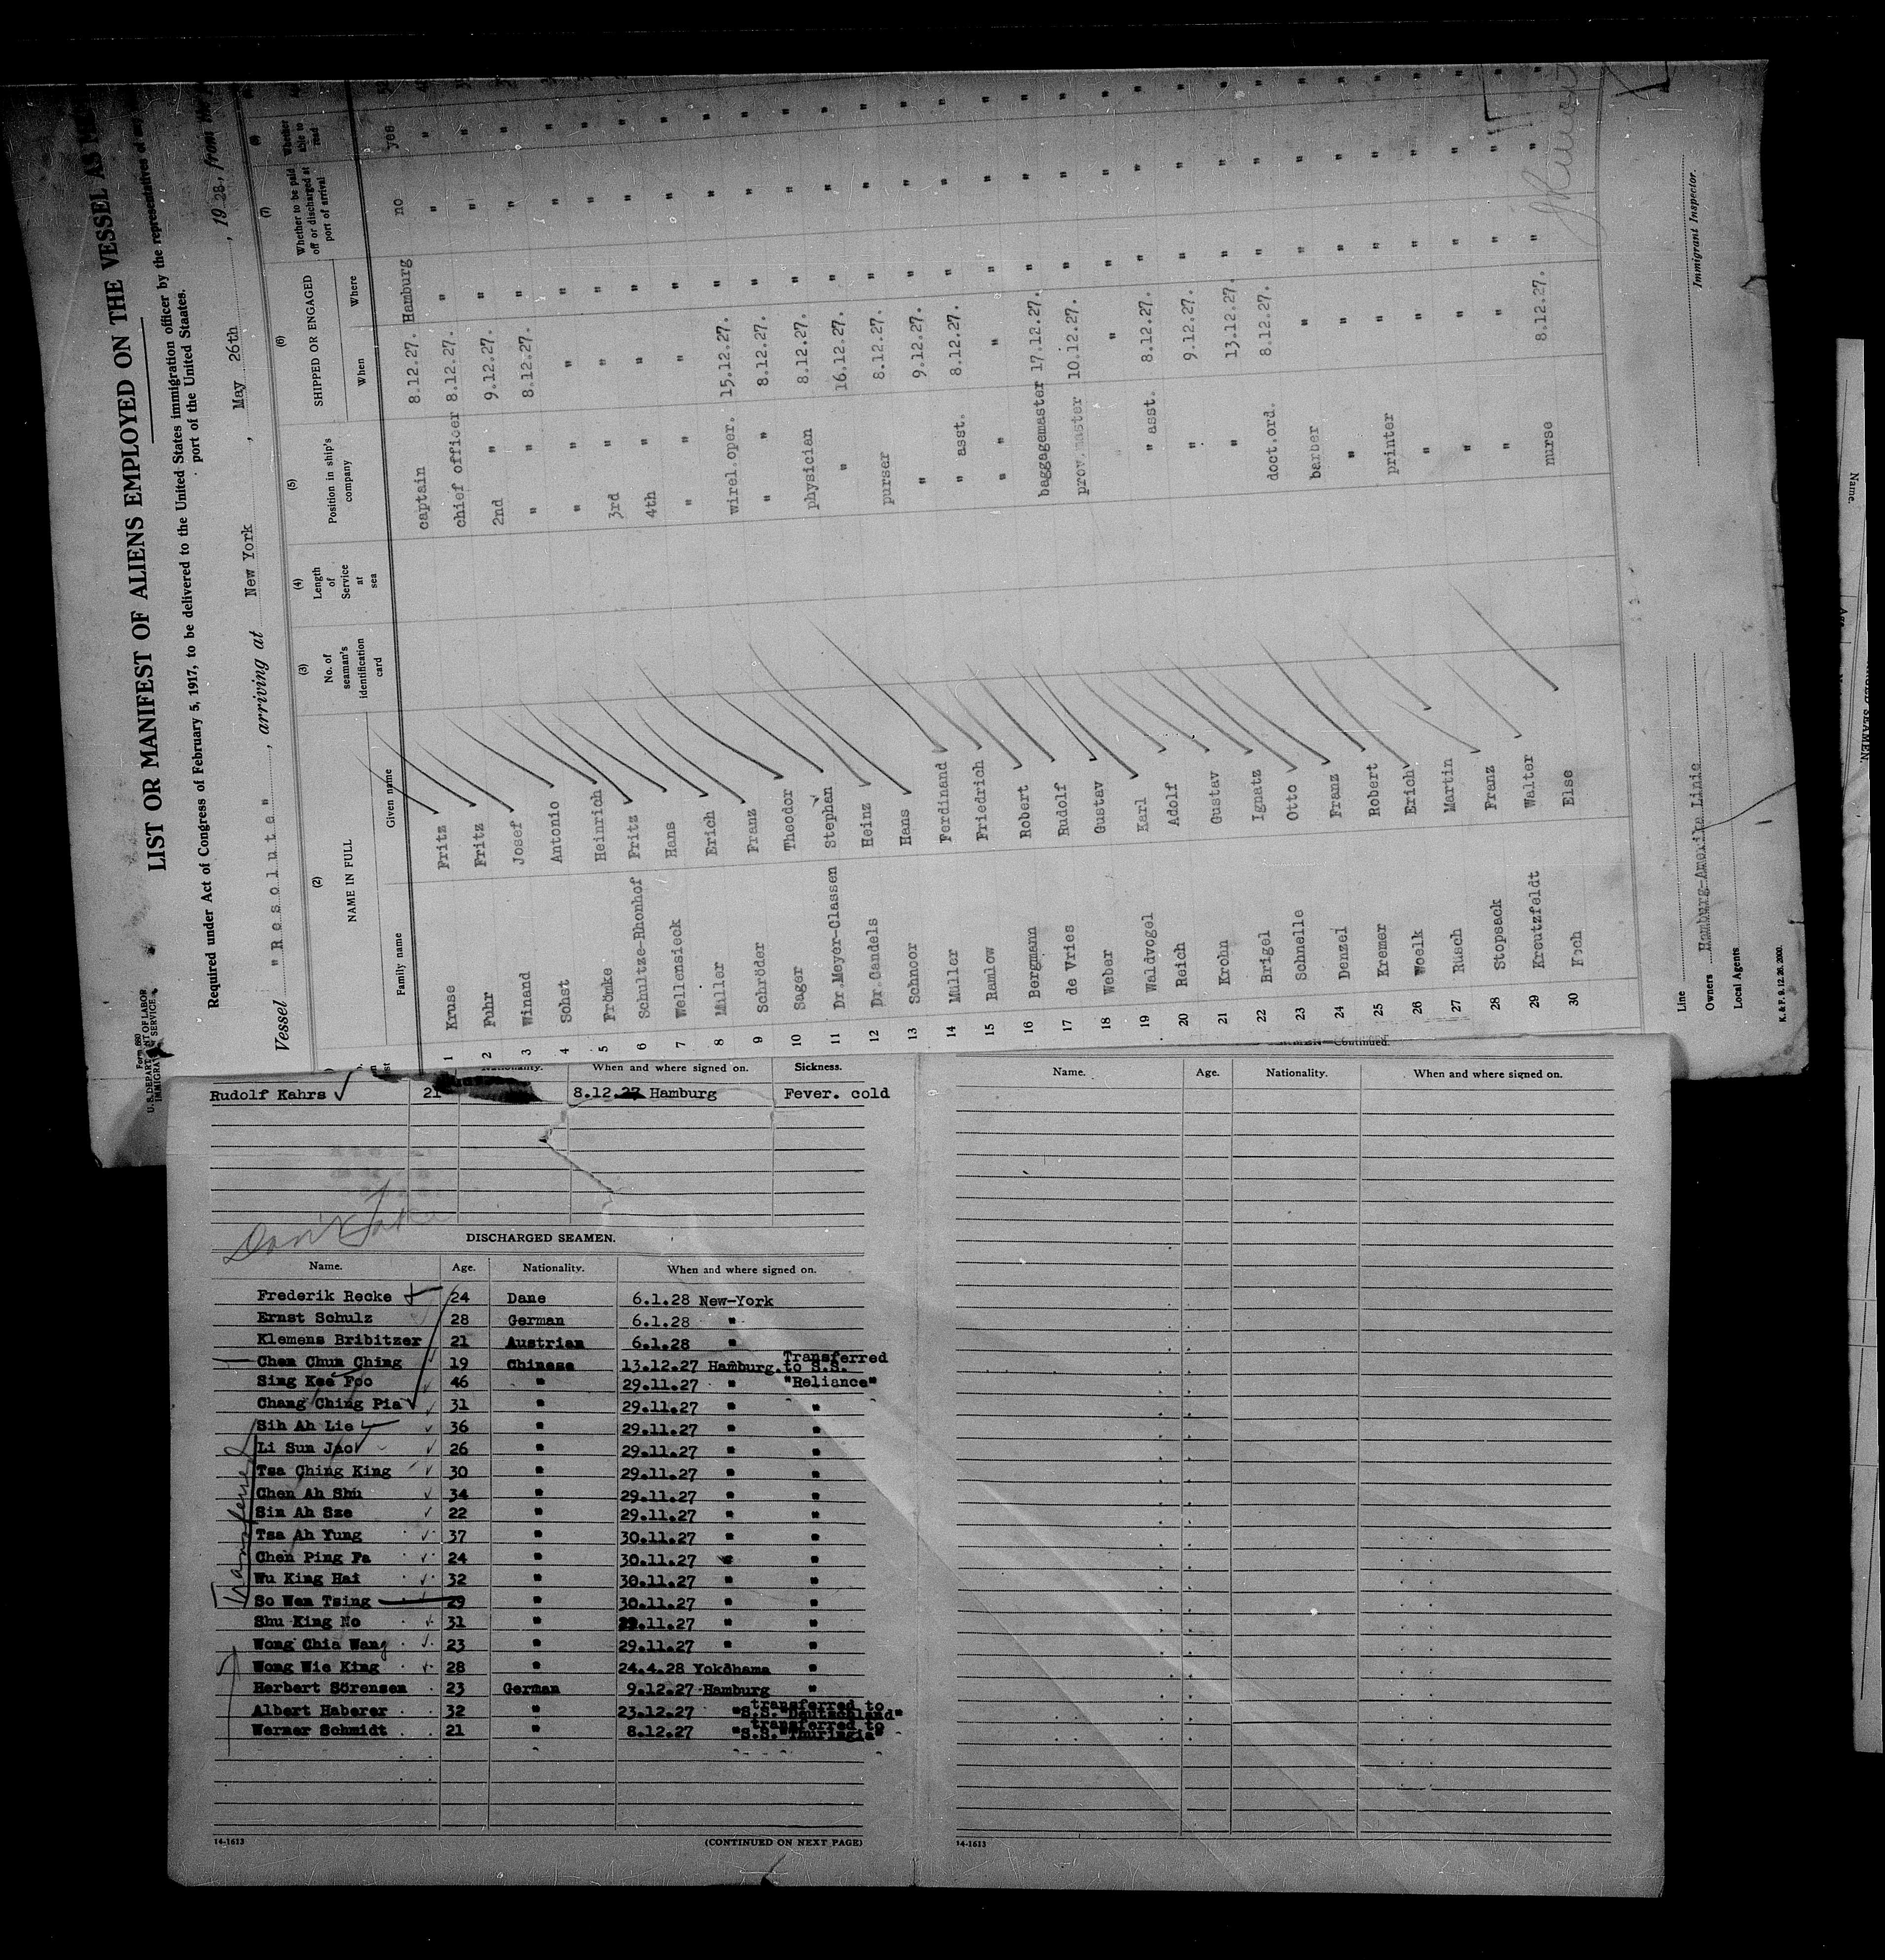 Form 680
U.S. DEPARTMENT OF LABOR
IMMIGRATION SERVICE
LIST OR MANIFEST OF ALIENS EMPLOYED ON THE VESSEL AS
Required under Act of Congress of February 5, 1917, to be delivered to the United States immigration officer by the representatives of
port of the United Staates.
Vessel "Resolute", arriving at New York, May 26th, 1928, from the
(2) (3) (4) (5) (6) (7) (8)
NAME IN FULL No. of seaman's identification card Length of Service at sea Position in ship's company SHIPPED OR ENGAGED Whether to be paid off or discharged at port of arrival Whether able to read
Family name Given name When Where
1 Kruse Fritz captain 8.12.27. Hamburg no yes
2 Fuhr Fritz chief officer 8.12.27. " " "
3 Winand Josef 2nd " 9.12.27. " " "
4 Sohst Antonio " " 8.12.27. " " "
5 Frömke Heinrich " " " " " "
6 Schultze-Rhonhof Fritz 3rd " " " " "
7 Wellensieck Hans 4th " " " " "
8 Müller Erich " " " " " "
9 Schröder Franz wirel.oper. 15.12.27. " " "
10 Sager Theodor " " 8.12.27. " " "
11 Dr.Meyer-Classen Stephan physician 8.12.27. " " "
12 Dr.Candels Heinz " 16.12.27. " " "
13 Schnoor Hans purser 8.12.27. " " "
14 Müller Ferdinand " 9.12.27. " " "
15 Ramlow Friedrich " asst. 8.12.27. " " "
16 Bergmann Robert " " " " " "
17 de Vries Rudolf baggagemaster 17.12.27. " " "
18 Weber Gustav prov.master 10.12.27. " " "
19 Waldvogel Karl " " " "
20 Reich Adolf " asst. 8.12.27. " " "
21 Krohn Gustav " 9.12.27. " " "
22 Brigel Ignatz " 13.12.27. " " "
23 Schnelle Otto doct.ord. 8.12.27. " " "
24 Denzel Franz barber " " " "
25 Kremer Robert " " " " "
26 Woelk Erich printer " " " "
27 Rüsch Martin " " " " "
28 Stopsack Franz " " " " "
29 Kreutzfeldt Walter " " " " "
30 Koch Else nurse 8.12.27. " " "
Line
Owners Hamburg-Amerika Linie
Local Agents
Immigrant Inspector.
K. & F. 9. 12. 26. 2000.
Nationality. When and where signed on. Sickness.
Rudolf Kahrs 21 8.12.27 Hamburg Fever. cold
DISCHARGED SEAMEN.
Name. Age. Nationality. When and where signed on.
Frederik Recke 24 Dane 6.1.28 New-York
Ernst Schulz 28 German 6.1.28 "
Klemens Bribitzer 21 Austrian 6.1.28 "
Chen Chun Ching 19 Chinese 13.12.27 Hamburg. Transferred to S.S.
Sing Kee Foo 46 " 29.11.27 " "Reliance"
Chang Ching Pia 31 29.11.27 " "
Sih Ah Lie 36 " 29.11.27 " "
Li Sun Jao 26 " 29.11.27 " "
Tsa Ching King 30 " 29.11.27 " "
Chen Ah Shu 34 " 29.11.27 " "
Sin Ah Sze 22 " 29.11.27 " "
Tsa Ah Yung 37 " 30.11.27 " "
Chen Ping Fa 24 " 30.11.27 " "
Wu King Hai 32 " 30.11.27 " "
So Wen Tsing 29 " 30.11.27 " "
Shu King No 31 " 29.11.27 " "
Wong Chia Wang 23 " 29.11.27 " "
Wong Wie King 28 " 24.4.28 Yokohama "
Herbert Sörensen 23 German 9.12.27 Hamburg "
Albert Haberer 32 " 23.12.27 " transferred to S.S."Deutschland"
Werner Schmidt 21 " 8.12.27 " transferred to S.S."Thuringia"
Transferred
14-1613
(CONTINUED ON NEXT PAGE)
Continued.
Name. Age. Nationality. When and where signed on.
14-1613
Name.